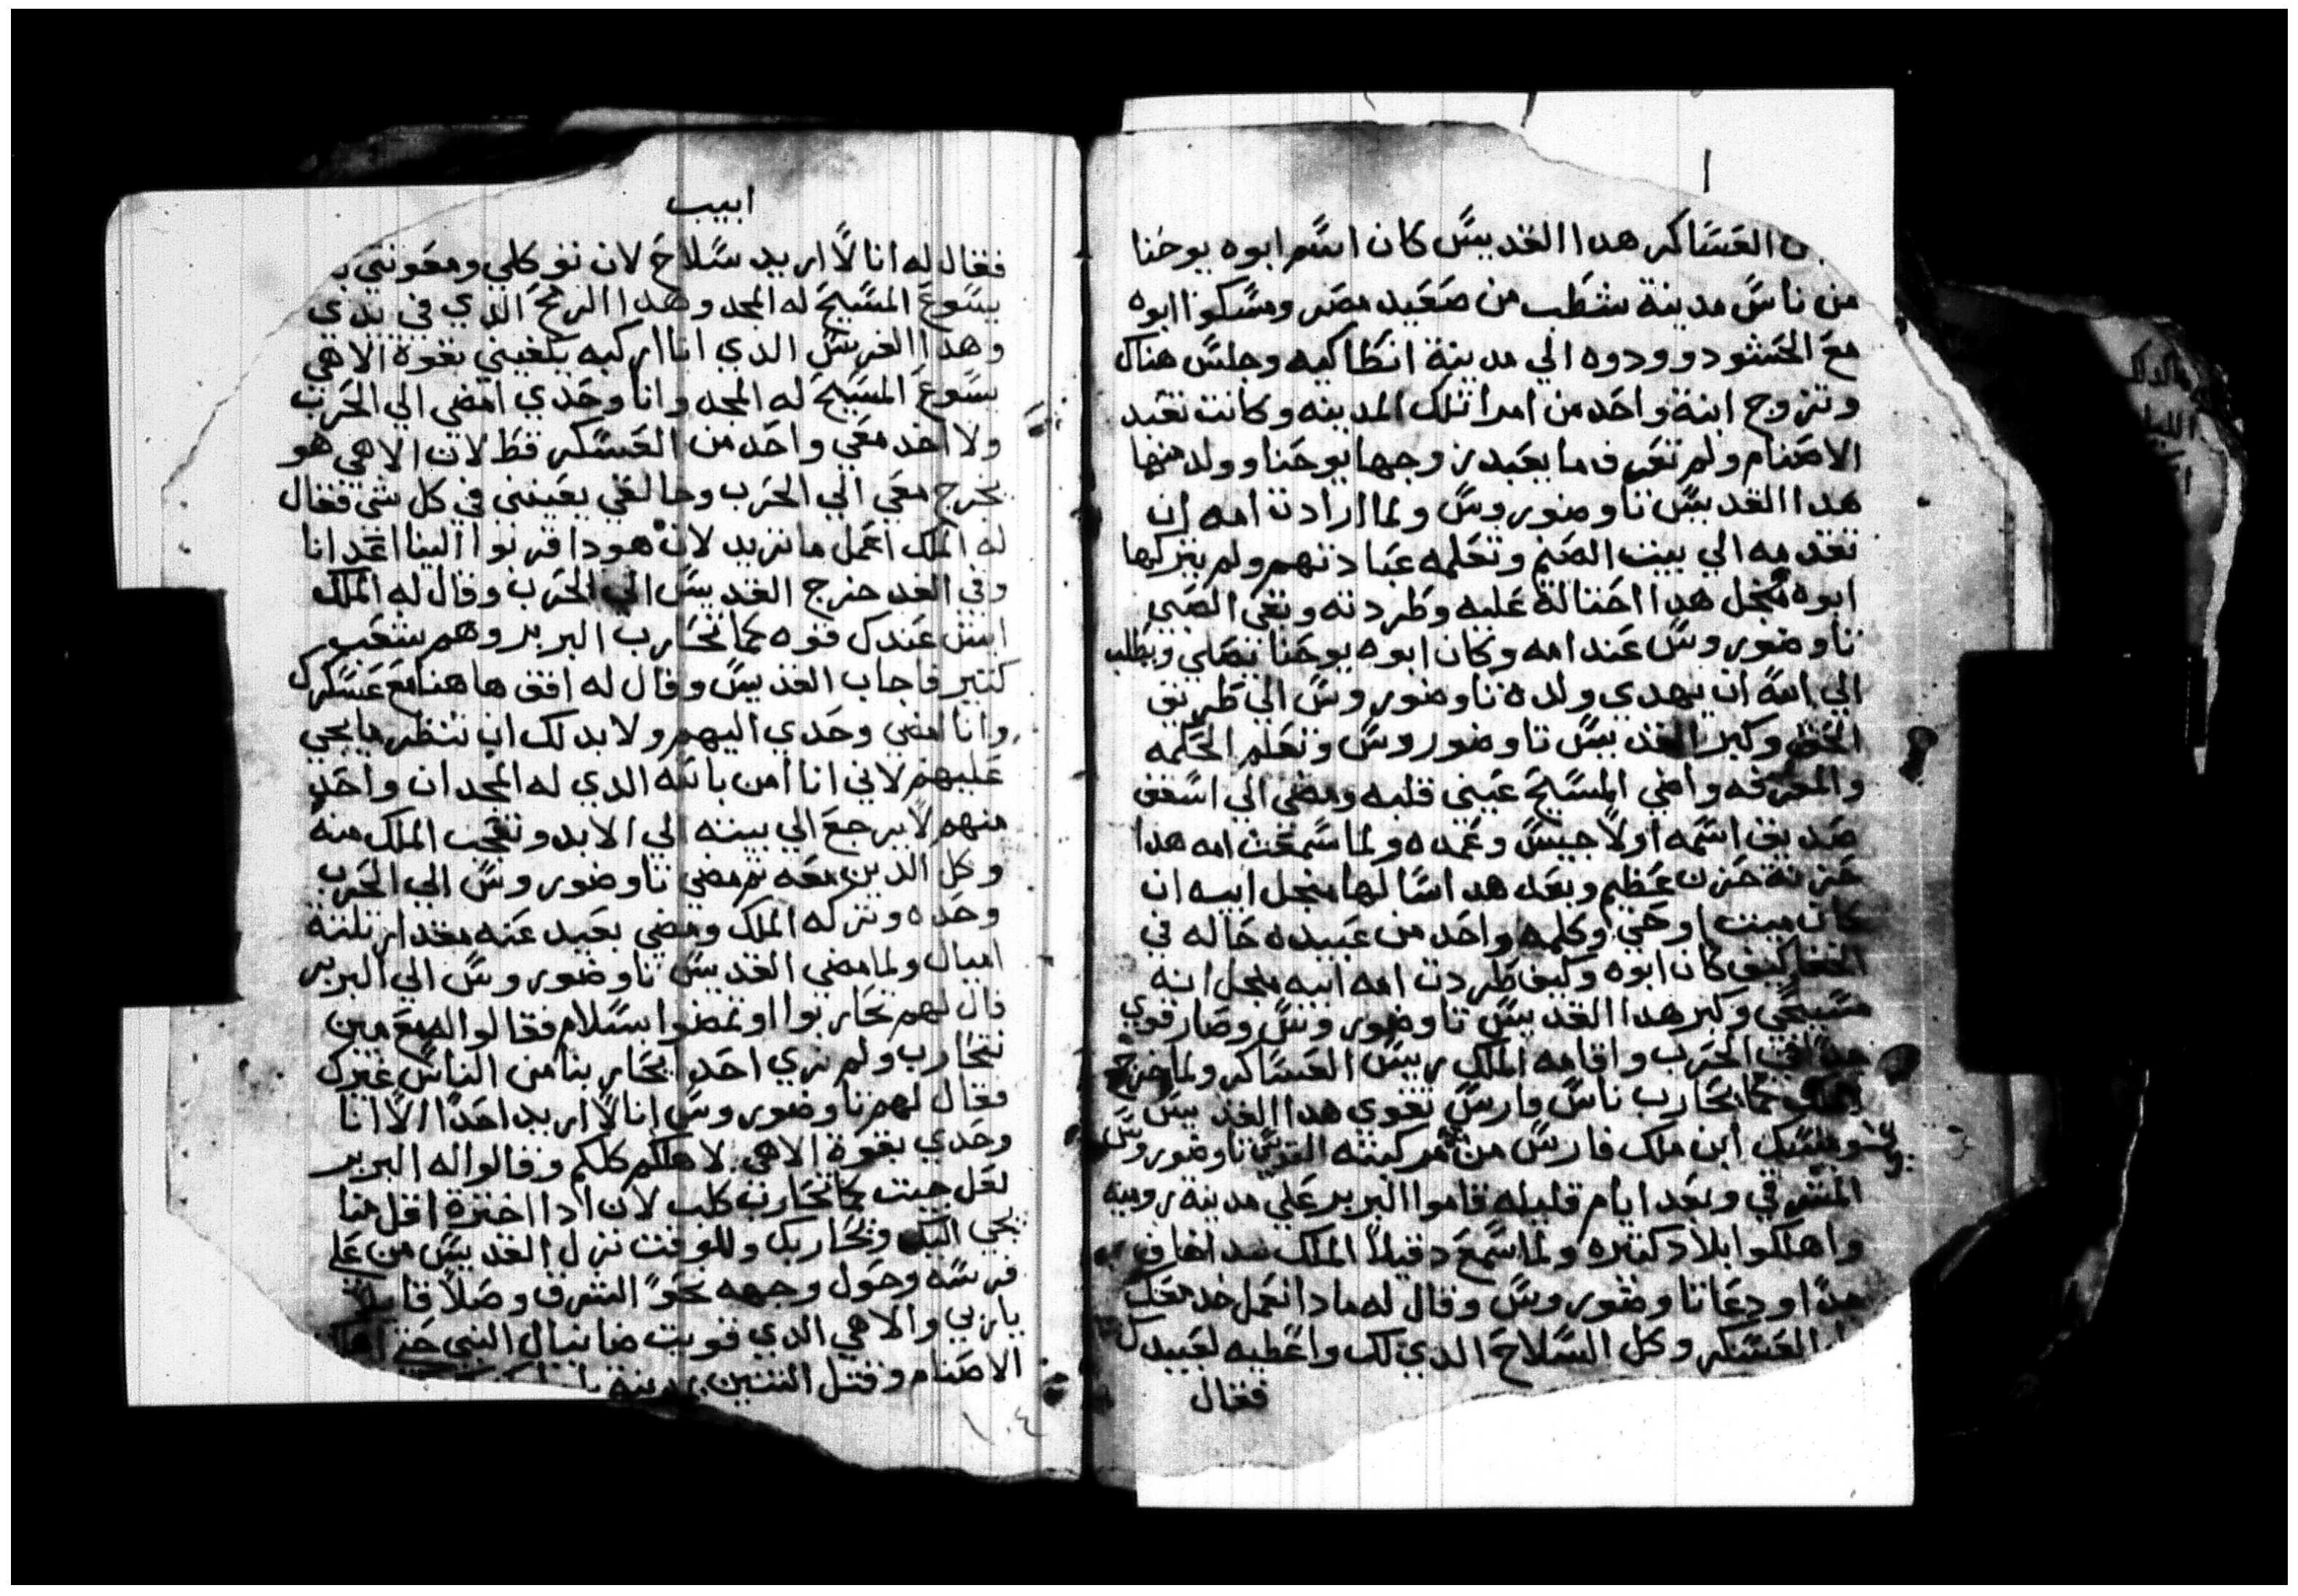 العساكر هدا القديس كان اسم ابوه يوحنا
من ناس مدينة شطب من صعيد مصر ومسكوا ابوه
مع الحشود وودوه الي مدينة انطاكيه وجلس هناك
وتزوج ابنة واحد من امرا تلك المدينه وكانت تعبد
الاصنام ولم تعرف ما يعبد زوجها يوحنا وولد منها
هدا القديس تاوضوروس ولما ارادت امه ان
تقدمه الي بيت الصنم وتعلمه عبادتهم ولم يتركها
ابوه منجل هدا احتالة عليه وطردته وبقي الصبي
تاوضوروس عند امه وكان ابوه يوحنا يصلي ويطلب
الي الله ان يهدي ولده تاوضوروس الي طريق
الحق وكبر القديس تاوضوروس وتعلم الحكمه
والمعرفه واضي المسيح عيني قلبه ومضي الي اسقف
صديق اسمه اولاجيس وعمده ولما سمعت امه هدا
حزنة حزن عظيم وبعد هدا سالها منجل ابيه ان
كان ميت او حي وكلمه واحد من عبيده خاله في
الخفا كيف كان ابوه وكيف طردت امه ابيه منجل انه
مسيحي وكبر هدا القديس تاوضوروس وصار قوي
جدا في الحرب واقامه الملك رييس العساكر ولما خرج
الملك كما يحارب ناس فارس تقوي هدا القديس
ومسك ابن ملك فارس من مركبته القديس تاوضوروس
المشرقي وبعد ايام قليله قاموا البربر علي مدينة روميه
واهلكوا بلاد كتيره ولما سمع دقيلا الملك هدا خاف
جدا ودعا تاوضوروس وقال له مادا نعمل خد معك
العسكر وكل السلاح الدي لك واعطيه لعبيدك
فقال
ابيب
فقال له انا لا اريد سلاح لان توكلي ومعونتي
يسوع المسيح له المجد وهدا الرمح الدي في يدي
وهدا الفرس الدي انا اركبه يكفيني بقوة الاهي
يسوع المسيح له المجد وانا وحدي امضي الي الحرب
ولا اخد معي واحد من العسكر قط لان الاهي هو
يخرج معي الي الحرب وخالقي يعينني في كل شي فقال
له الملك اعمل ما تريد لان هودا قربوا الينا اعدانا
وفي الغد خرج القديس الي الحرب وقال له الملك
ايش عندك قوه كما تحارب البربر وهم شعب
كتير فاجاب القديس وقال له اقف هاهنا مع عسكرك
وانا امضي وحدي اليهم ولا بد لك ان تنظر ما يجي
عليهم لاني انا امن بالله الدي له المجد ان واحد
منهم لا يرجع الي بيته الي الابد وتعجب الملك منه
وكل الدين معه تم مضي تاوضوروس الي الحرب
وحده وتركه الملك ومضي بعيد عنه مقدار تلتة
اميال ولما مضي القديس تاوضوروس الي البربر
قال لهم تحاربوا او تمضوا بسلام فقالوا له مع مين
نتحارب ولم نري احد يحاربنا من الناس غيرك
فقال لهم تاوضوروس انا لا اريد احدا الا انا
وحدي بقوة الاهي لاهلككم كلكم وقالوا له البربر
لعل جيت كما تحارب كلب لان ادا اخترة اقل منا
يجي اليك ويحاربك وللوقت نزل القديس من علي
فرسه وحول وجهه نحو الشرق وصلا قايلا
ياربي والاهي الدي قويت ضانيال النبي
الاصنام وقتل التنين
١٠٤